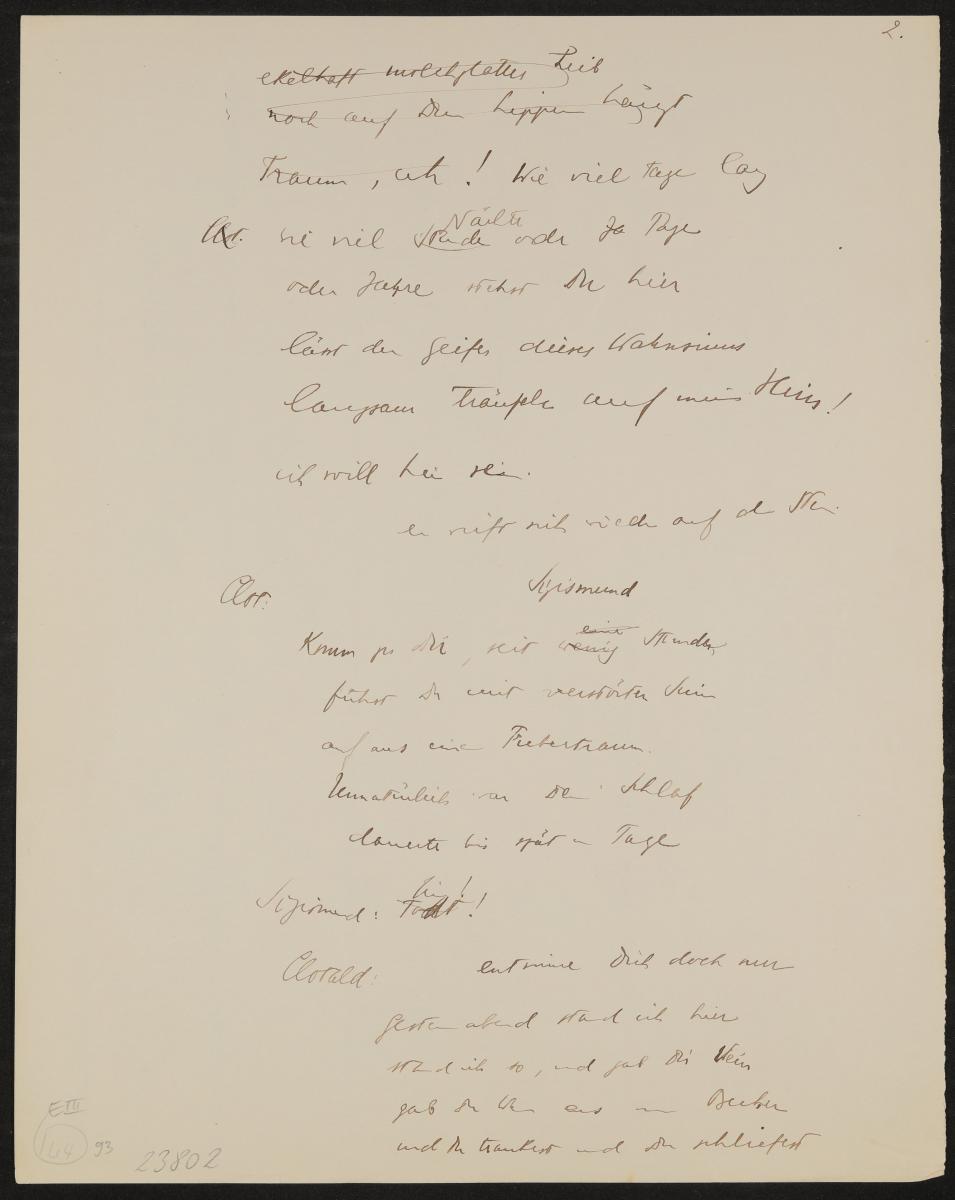 2.
ekelhaft molchglatter Leib
noch auf den Lippen hängt
Traum, ich! Wie viel Tage lag
Clot. wie viel Nächte Stunde oder Ja Tage
oder Jahre stehst Du hier
lässt den Geifer dieses Wahnsinns
langsam träufeln auf mein Hirn!
ich will bei sein.
er wirft sich wieder auf den
Sigismund
Clot:
Komm zu Dir, seit wenig eine Stunden
führst Du mit verstörten Sinn
auf aus einem Fiebertraum.
Unnatürlich war Dein Schlaf
dauerte bis spät in Tag
hin!
Sigismund: Fort!
Clotald: entsinne Dich doch nur
gestern abend stand ich hier
stand ich so, und gab Dir Wein
gab Dir Wein aus Becher
und Du trankest und Du schliefest
E III
44 93
23802